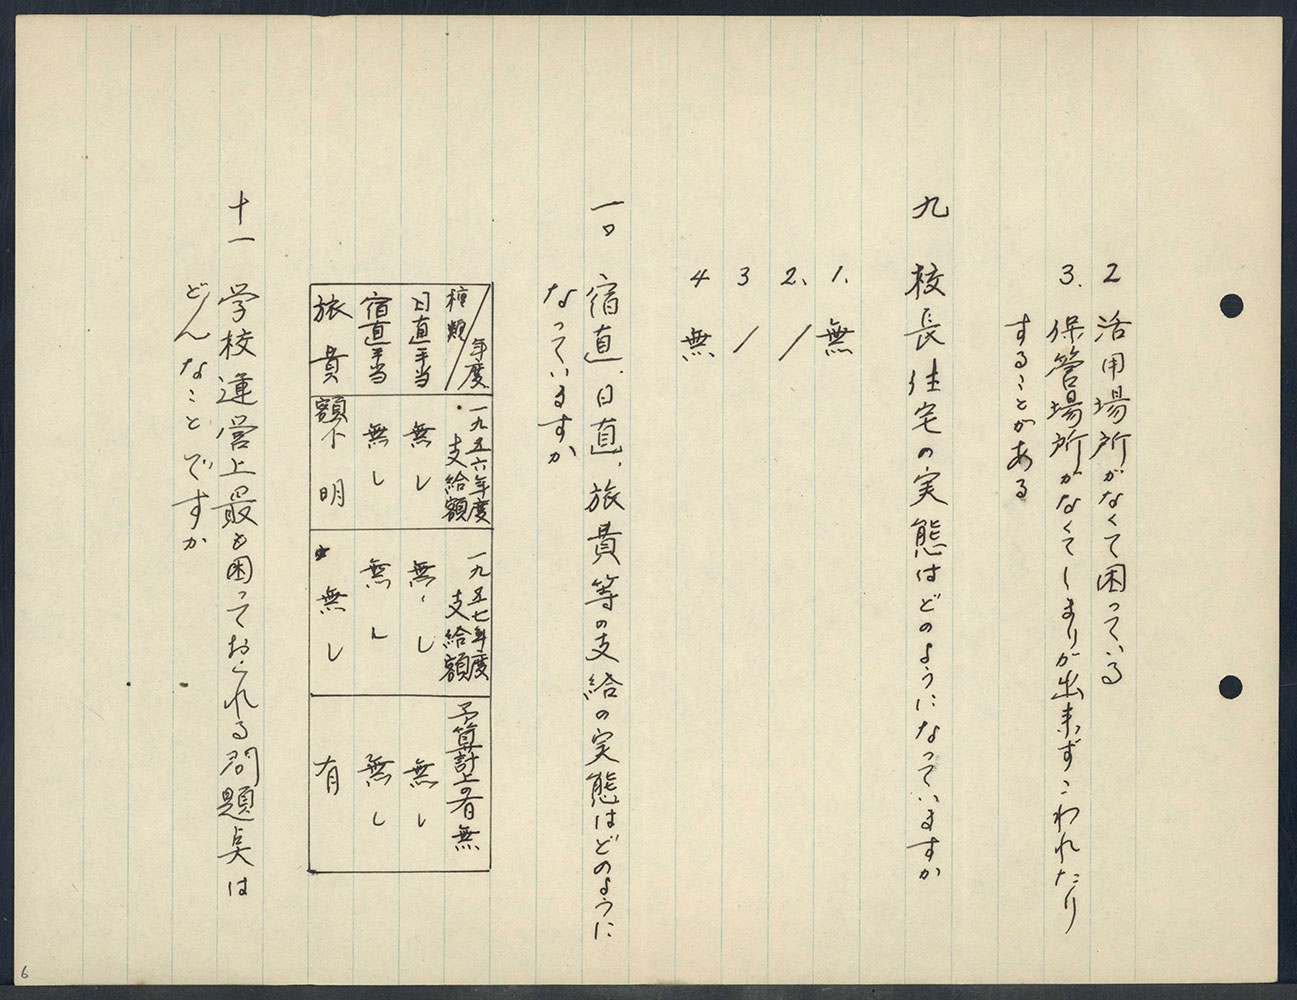 2 活用場所がなくて困っている
3. 保管場所がなくてしまりが出来ずこわれたり
することがある
九 校長住宅の実態はどのようになっていますか
1. 無
2. /
3 /
4 無
一〇 宿直、日直、旅費等の支給の実態はどのように
なっていますか
年度 種類
一九五六年度支給額
一九五七年度支給額
予算計上の有無
日直手当 無し 無し 無し
宿直手当 無し 無し 無し
旅費 額不明 無し 有
十一 学校運営上最も困っておられる問題点は
どんなことですか
6